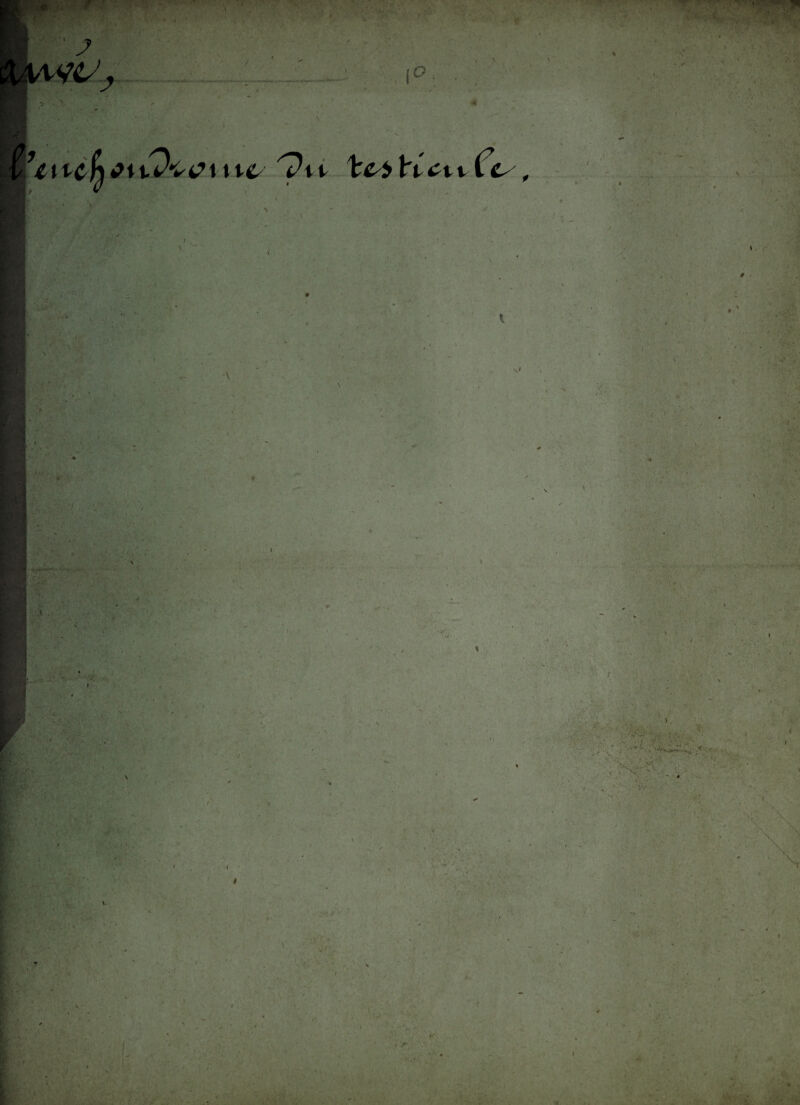 10
l'enchondrome du testicule,